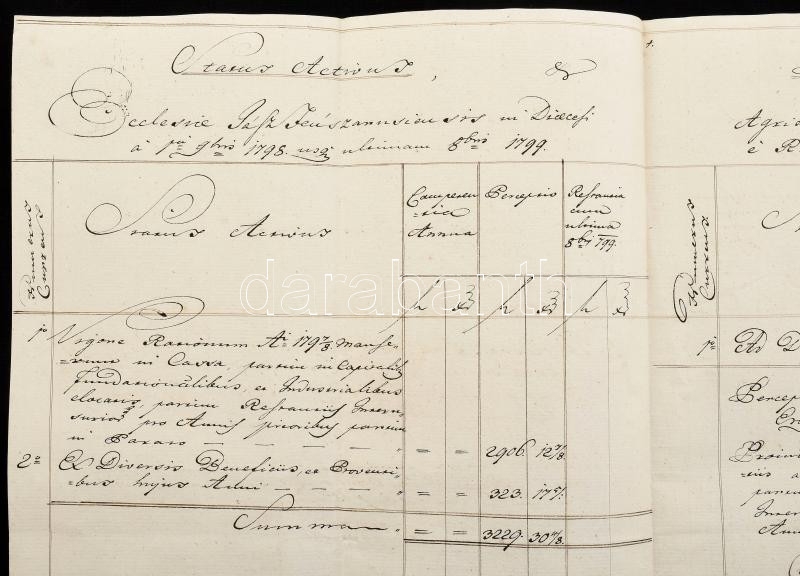 Status Activus,
Ecclesiæ Jász Jeúszarusiensis in Diœcesi
à 1ma 9bris 1798. usq; ultimam 8bris 1799.
Numerus
Currens
Status Activus
Competen
=tia
Annua
Perceptio
Restantia
cum
ultima
8bris 799.
1o Vigore Rationum Ai 1797/8 manse-
=runt in Cassa, partim in Capitalib
fundationalibus, et Industrialibus
elocatis partim Restantiis
pro Annis prioribus partim
in Parato — — — — — " = = 2906. 12 /8.
2o Ex Diversis Beneficiis, et Proventi-
=bus hujus Anni — — — — " = = 323. 17
Summa " = = 3229. 30 /8.
Agrie
è R
Numerus
Currens
1o Ad D
Percep
Provin
darabanth